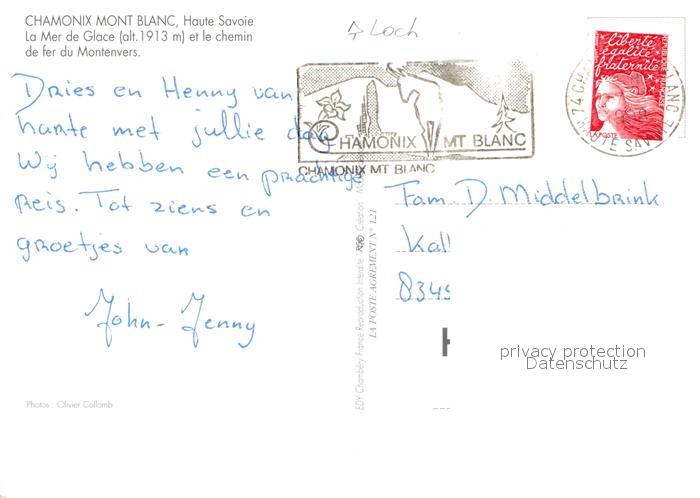 CHAMONIX MONT BLANC, Haute Savoie
La Mer de Glace (alt.1913 m) et le chemin
de fer du Montenvers.
Loch
Dries en Henny van
harte met jullie dag
Wij hebben een prachtige
reis. Tot ziens en
groetjes van
John - Jenny
Photos : Olivier Collomb
EDY Chambéry France Reproduction Interdite
LA POSTE AGREMENT N° 121
CHAMONIX MT BLANC
CHAMONIX MT BLANC
liberté
égalité
fraternité
LA POSTE
HAUTE SAVOIE
Fam D. Middelbrink
Kall
8349
privacy protection
Datenschutz